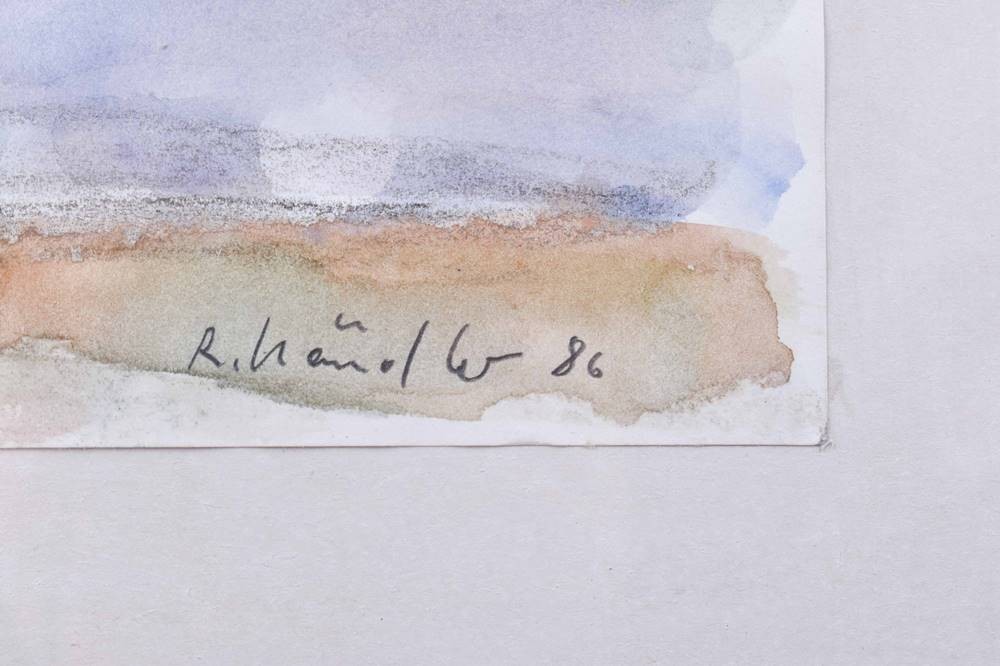 R. Händler 86